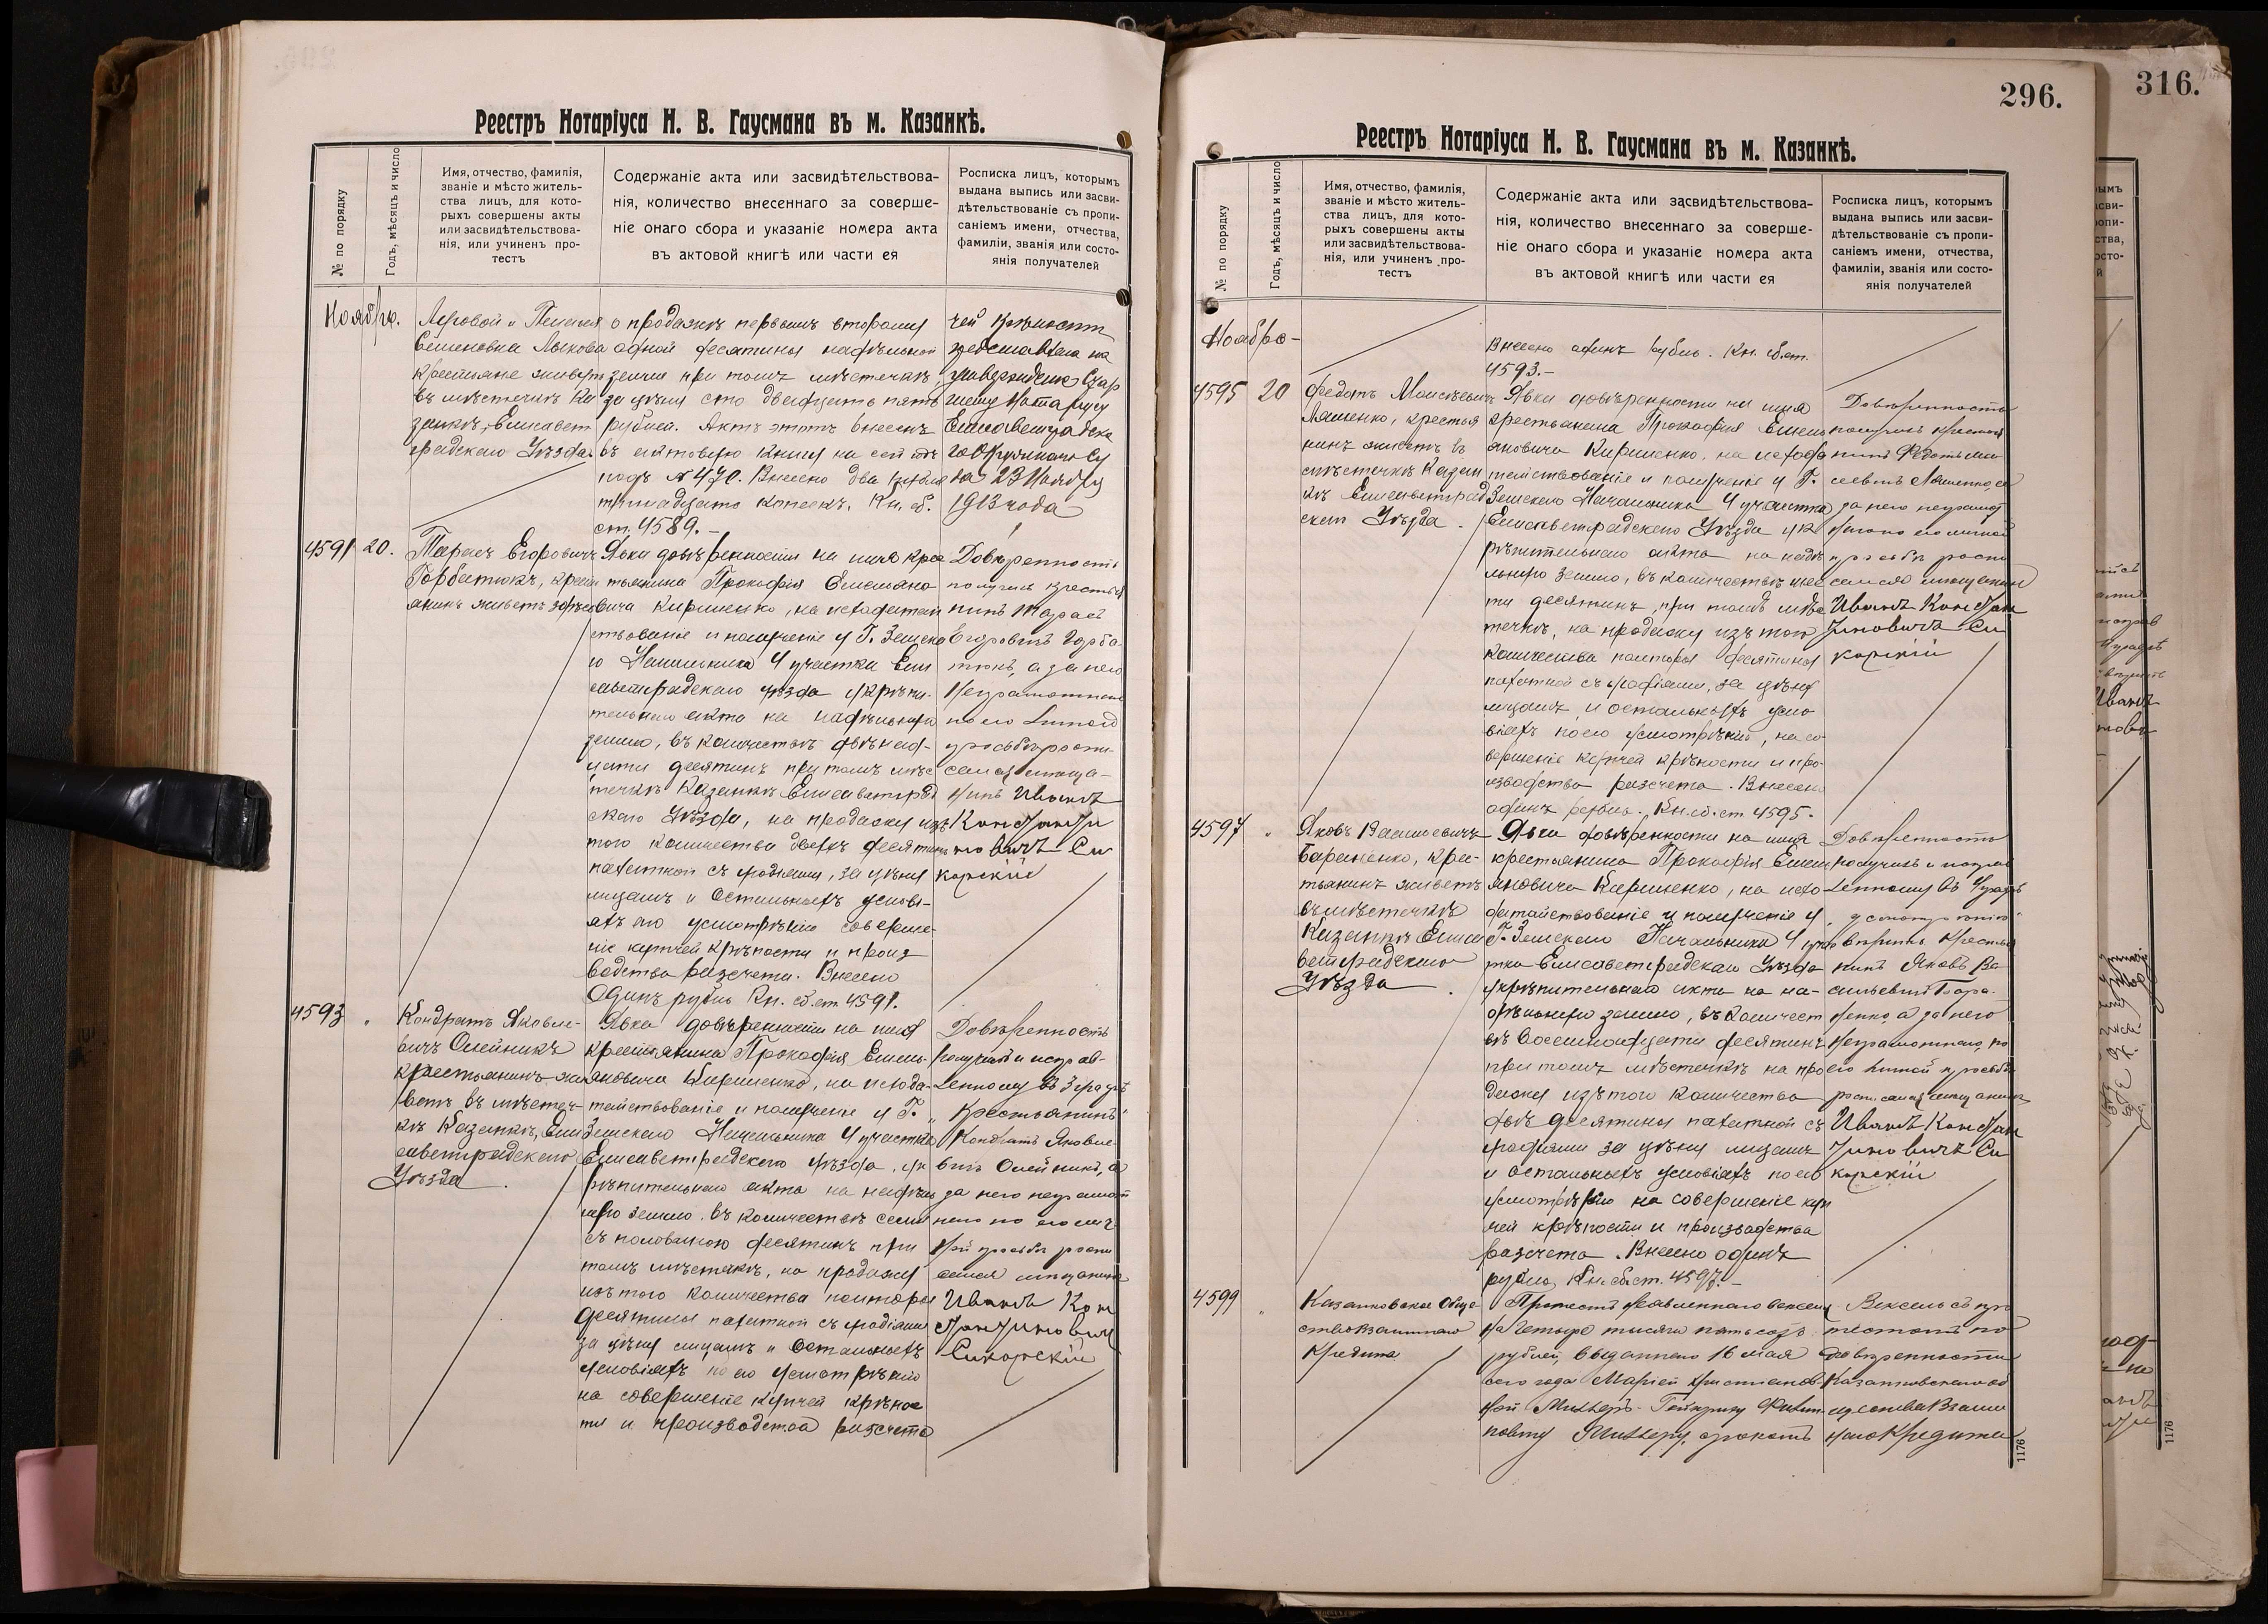 Реестръ Нотаріуса Н. В. Гаусмана въ м. Казанкѣ.
№ по порядку
Годъ, мѣсяцъ и число
Имя, отчество, фамилія,
званіе и мѣсто житель-
ства лицъ, для кото-
рыхъ совершены акты
или засвидѣтельствова-
нія, или учиненъ про-
тестъ
Содержаніе акта или засвидѣтельствова-
нія, количество внесеннаго за соверше-
ніе онаго сбора и указаніе номера акта
въ актовой книгѣ или части ея
Росписка лицъ, которымъ
выдана выпись или засви-
дѣтельствованіе съ пропи-
саніемъ имени, отчества,
фамиліи, званія или состо-
янія получателей
Ноября.
Семеновна Лыкова
крестьяне живутъ
въ мѣстечкѣ Ка
занкѣ, Елисавет
градскаго Уѣзда.
о продажѣ первымъ второму
одной десятины надѣльной
земли при томъ мѣстечкѣ,
за цѣну сто двадцать пять
рублей. Актъ этотъ внесенъ
въ актовую книгу на сей годъ
подъ № 470. Внесено два рубля
тринадцать копеекъ. Кн. сб.
ст. 4589.-
чей крѣпости
представлена на
утвержденіе Стар
шему Нотаріусу
Елисаветградска
го Окружнаго Су
да 23 Ноября
1913 года
4591 20.
Тарасъ Егоровичъ
Горбатюкъ, крест
янинъ живетъ здѣсь
Явка довѣренности на имя крес
тьянина Прокофія Емельяно
вича Кириленко, на исходатай
ствованіе и полученіе у Г. Земска
го Начальника 4 участка Ели
саветградскаго уѣзда укрѣпи-
тельнаго акта на надѣльную
землю, въ количествѣ двѣнад-
цати десятинъ при томъ мѣс
течкѣ Казанкѣ Елисаветград
скаго Уѣзда, на продажу изъ
того количества двухъ десятинъ
пахатной съ угодіями, за цѣну
лицамъ и остальныхъ услові-
яхъ его усмотрѣнію соверше-
ніе купчей крѣпости и произ
водства разсчета. Внесено
Одинъ рубль Кн. сб. ст. 4591.
Довѣренность
получилъ крестья
нинъ Тарасъ
Егоровичъ Горба
тюкъ, а за него
неграмотнаго
по его личной
просьбѣ роспи-
сался мѣща-
нинъ Иванъ
Константи
новичъ Си
корскій
4593 "
Кондратъ Яковле-
вичъ Олейникъ
крестьянинъ жи
ветъ въ мѣстеч-
кѣ Казанкѣ, Ели
саветградскаго
Уѣзда.
Явка довѣренности на имя
крестьянина Прокофія Емель-
яновича Кириленко, на исхода-
тайствованіе и полученіе у Г.
Земскаго Начальника 4 участка
Елисаветградскаго уѣзда, ук
рѣпительнаго акта на надѣль
ную землю, въ количествѣ семи
съ половиною десятинъ при
томъ мѣстечкѣ, на продажу
изъ того количества полторы
десятины пахатной съ угодіями
за цѣну лицамъ и остальныхъ
условіяхъ по его усмотрѣнію
на совершеніе купчей крѣпос
ти и производства разсчета
Довѣренность
получилъ и исправ-
ленному въ 3 графѣ
„Крестьянинъ“
Кондратъ Яковле
вичъ Олейникъ, а
за него неграмот
наго по его лич
ной просьбѣ роспи
сался мѣщанинъ
Иванъ Кон
стантинович
Сикорскій
296.
Реестръ Нотаріуса Н. В. Гаусмана въ м. Казанкѣ.
№ по порядку
Годъ, мѣсяцъ и число
Имя, отчество, фамилія,
званіе и мѣсто житель-
ства лицъ, для кото-
рыхъ совершены акты
или засвидѣтельствова-
нія, или учиненъ про-
тестъ
Содержаніе акта или засвидѣтельствова-
нія, количество внесеннаго за соверше-
ніе онаго сбора и указаніе номера акта
въ актовой книгѣ или части ея
Росписка лицъ, которымъ
выдана выпись или засви-
дѣтельствованіе съ пропи-
саніемъ имени, отчества,
фамиліи, званія или состо-
янія получателей
Ноября-
Внесено одинъ рубль. Кн. сб. ст.
4593.-
4595 20
Федотъ Моисѣевичъ
Ляшенко, крестья
нинъ живетъ въ
мѣстечкѣ Казан
кѣ Елисаветград
скаго Уѣзда.
Явка довѣренности на имя
крестьянина Прокофія Емель
яновича Кириленко, на исхода
тайствованіе и полученіе у Г.
Земскаго Начальника 4 участка
Елисаветградскаго Уѣзда ук
рѣпительнаго акта на надѣ
льную землю, въ количествѣ шес
ти десятинъ, при томъ мѣс
течкѣ, на продажу изъ того
количества полторы десятины
пахатной съ угодіями, за цѣну
лицамъ, и остальныхъ усло-
віяхъ по его усмотрѣнію, на со-
вершеніе купчей крѣпости и про-
изводства разсчета. Внесено
одинъ рубль. Кн. сб. ст. 4595.
Довѣренность
получилъ крестья
нинъ Федотъ Мои
сеевичъ Ляшенко, а
за него неграмот
наго по его личной
просьбѣ роспи
сался мѣщанинъ
Иванъ Констан
тиновичъ Си
корскій
4597 "
Яковъ Васильевичъ
Бараненко, крес-
тьянинъ живетъ
въ мѣстечкѣ
Казанкѣ Елиса
ветградскаго
Уѣзда.
Явка довѣренности на имя
крестьянина Прокофія Емель
яновича Кириленко, на исхо-
датайствованіе и полученіе у
Г. Земскаго Начальника 4 учас
тка Елисаветградскаго Уѣзда
укрѣпительнаго акта на на-
дѣльную землю, въ количест
вѣ восемнадцати десятинъ
при томъ мѣстечкѣ на про
дажу изъ того количества
двѣ десятины пахатной съ
угодіями за цѣну лицамъ
и остальныхъ условіяхъ по его
усмотрѣнію на совершеніе куп
чей крѣпости и производства
разсчета. Внесено одинъ
рубль, Кн. сб. ст. 4597.-
Довѣренность
получилъ и исправ
ленному въ 4 графѣ
„усмотрѣнію“
вѣрить крестья
нинъ Яковъ Ва
сильевичъ Бара-
ненко, а за него
неграмотнаго, по
его личной просьбѣ
росписался мѣщанинъ
Иванъ Констан
тиновичъ Си
корскій
4599 "
Казанковское Обще-
ство Взаимнаго
Кредита
Протестъ неявленнаго векселя
на четыре тысячи пятьсотъ
рублей, выданнаго 16 мая
сего года Маріей Христіанов-
ной Миллеръ Гейнриху Филип
повичу Миллеру, срокомъ
Вексель съ про
тестомъ по
довѣренности
Казанковскаго об
щества Взаим
наго Кредита
1176
316.
1176